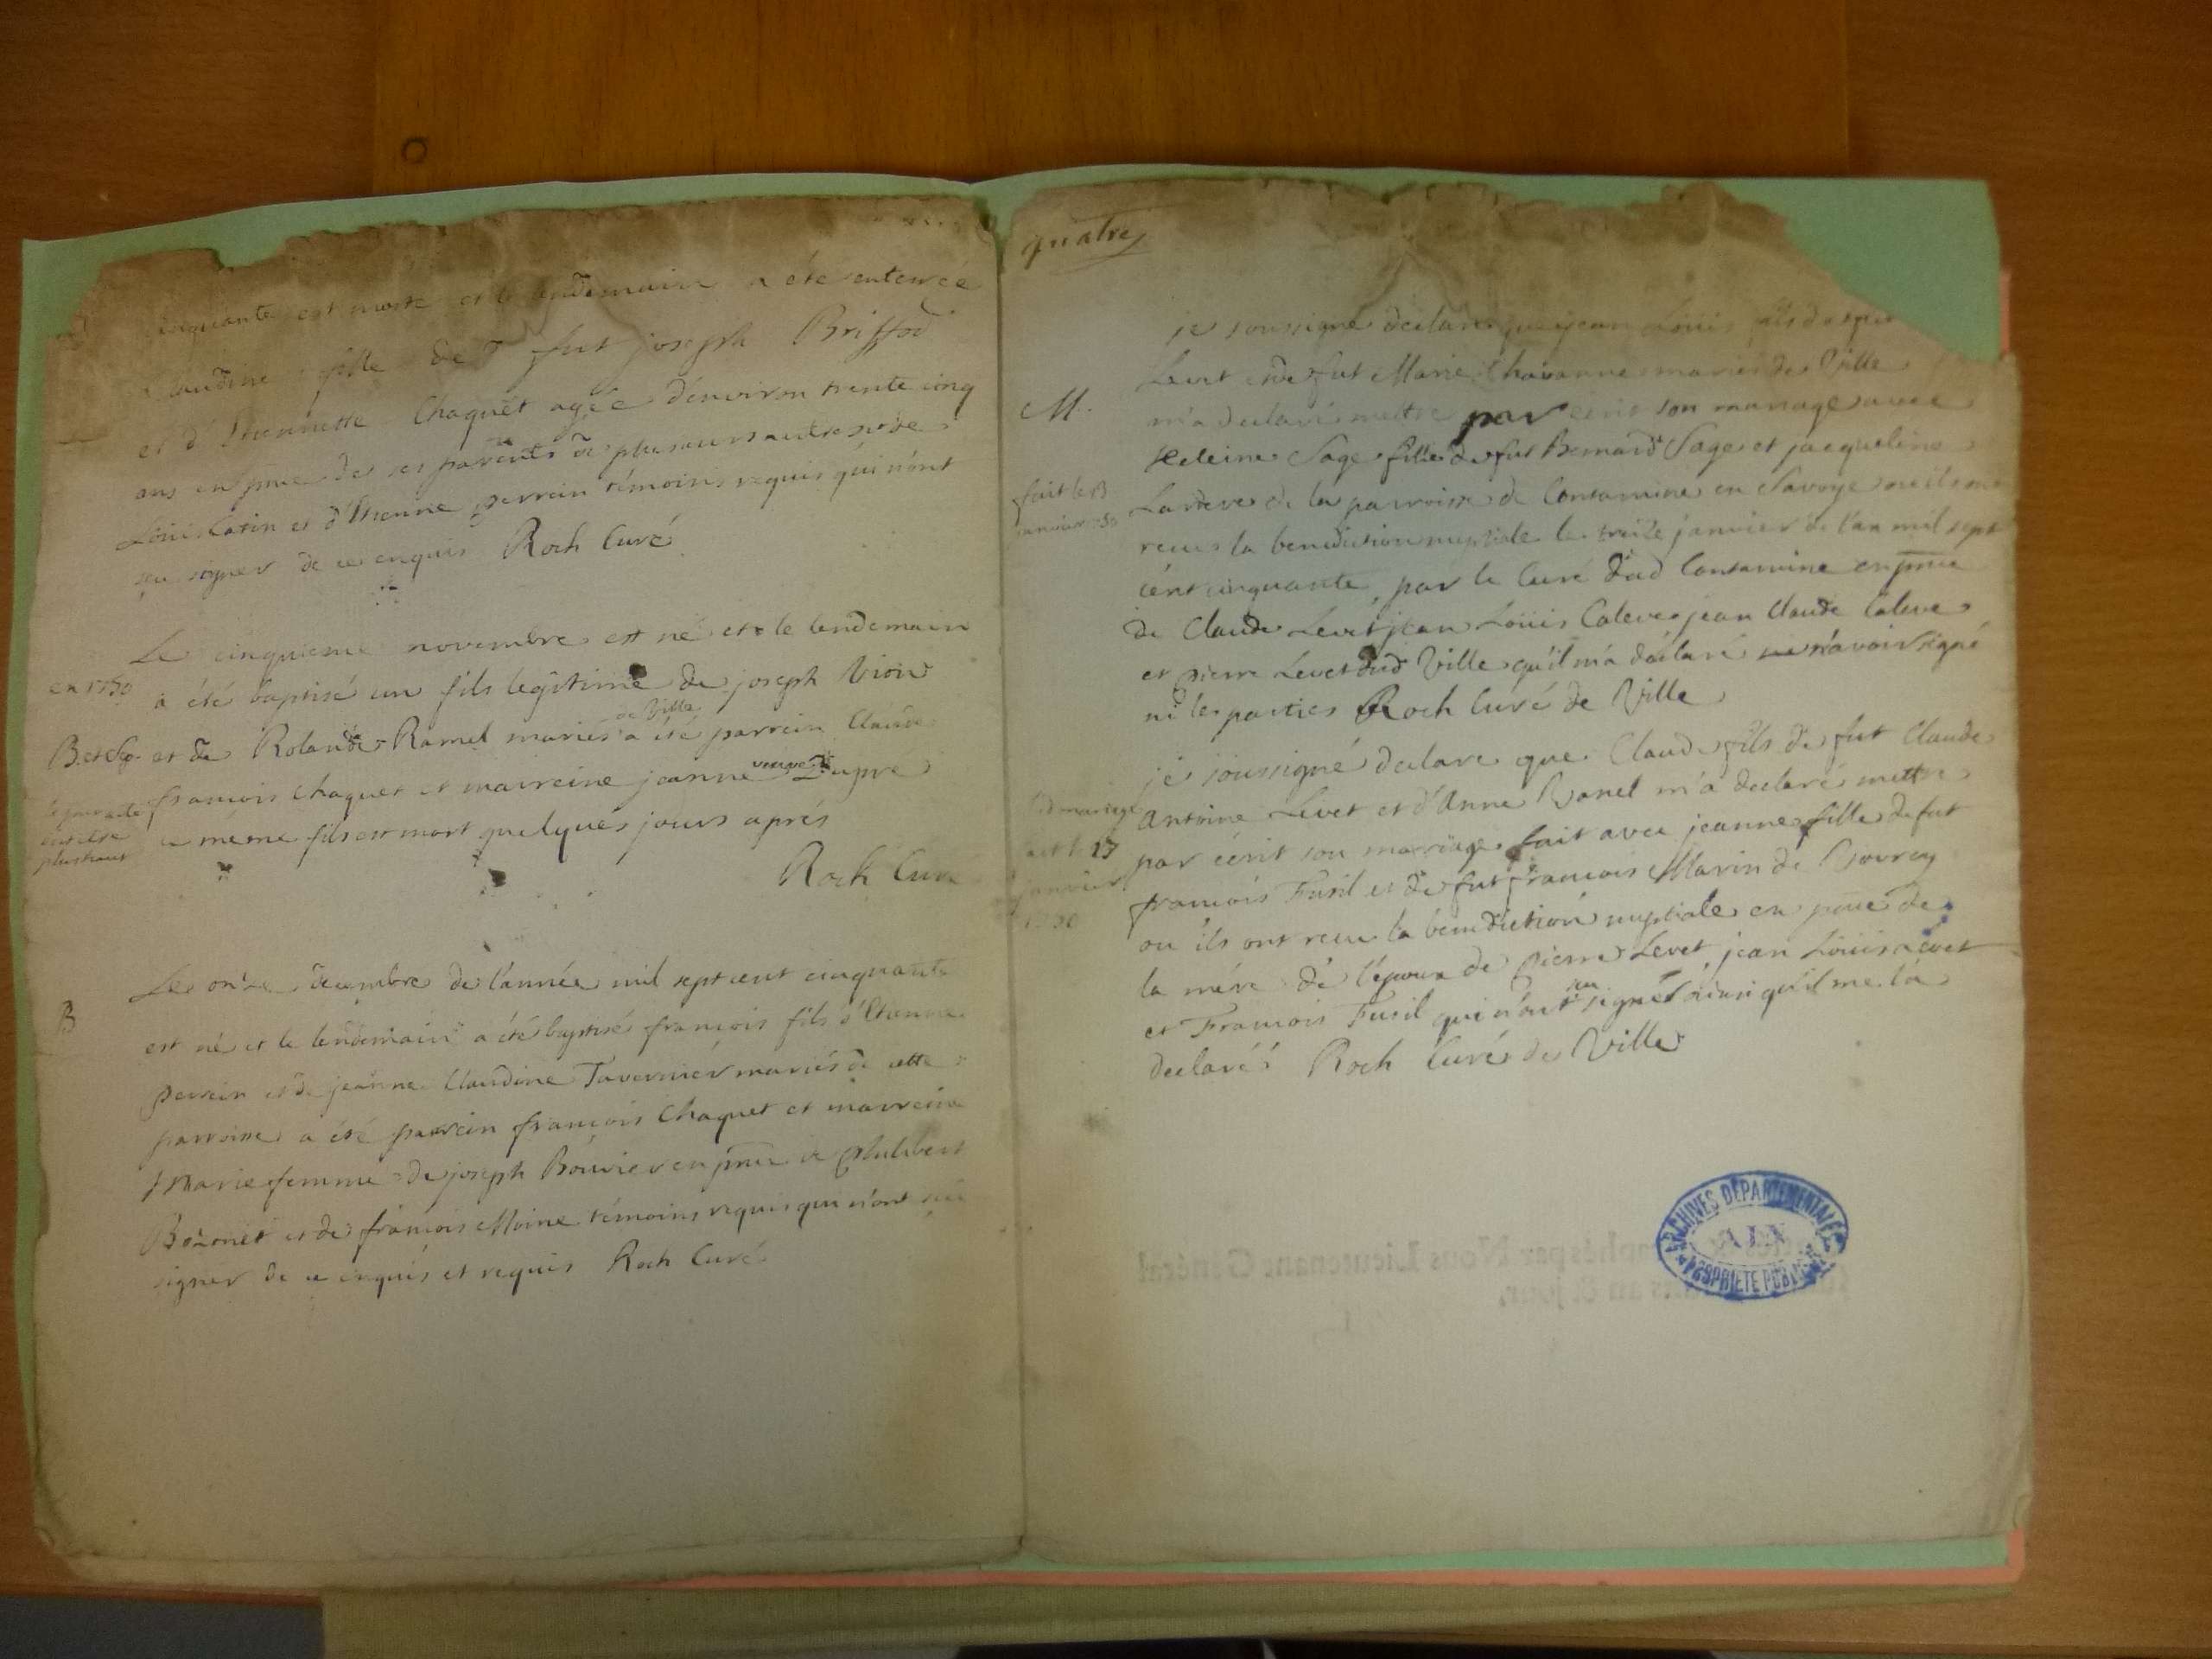 cinquante est morte et le lendemain a été enterrée
Claudine fille de fut joseph Briffod
et d'Etiennette Chaquet agée d'environ trente cinq
ans en pnce de ses parents de plusieurs autres et de
Louis Catin et d'Etienne perrein témoins requis qui n'ont
scu signer de ce enquis Roch Curé
Le cinquieme novembre est né et le lendemain
en 1750
a été baptisé un fils legitime de joseph Vion
de Ville
B. et Sep. et de Rolande Ramel mariés a été parrein Claude
veuve
françois Chaquet et marreine jeanne Dupre
plus haut
ce même fils est mort quelques jours aprés
Roch Curé
B
Le onze decembre de l'année mil sept cent cinquante
est né et le lendemain a été baptisé françois fils d'Etienne
perrein et de jeanne Claudine Tavernier mariés de cette
parroisse a été parrein françois Chaquet et marreine
Marie femme de joseph Bouvier en pnce de Philibert
Bozonet et de françois Moine témoins requis qui n'ont scu
signer de ce enquis et requis Roch Curé
quatre
je soussigné declare que jean Louis fils de
Levet et de fut Marie Chavanne mariés de Ville
M.
m'a declaré mettre par écrit son mariage avec
heleine Sage fille de fut Bernard Sage et jacqueline
fait le 13
janvier 1750
de la parroisse de Contamine en Savoye où ils ont
recus la benediction nuptiale le treize janvier de l'an mil sept
cent cinquante, par le Curé dud Contamine en pnce
de Claude Levet jean Louis Caleve jean Claude Caleve
et pierre Levet dud Ville qu'il m'a déclaré n'avoir signé
ni les parties Roch Curé de Ville
je soussigné declare que Claude fils de fut Claude
mariage
fait le 13
janvier
1750
Antoine Levet et d'Anne Vanel m'a declaré mettre
par écrit son mariage fait avec jeanne fille de fut
françois Fusil et de fut françoise Marin de
ou ils ont recu la benediction nuptiale en pnce de
la mére de l'epoux de pierre Levet, jean Louis Levet
scu
et François Fusil qui n'ont signer ainsi qu'il me l'a
declaré Roch Curé de Ville
ARCHIVES DÉPARTEMENTALES
AIN
PROPRIÉTÉ PUBLIQUE
par Nous Lieutenant Général